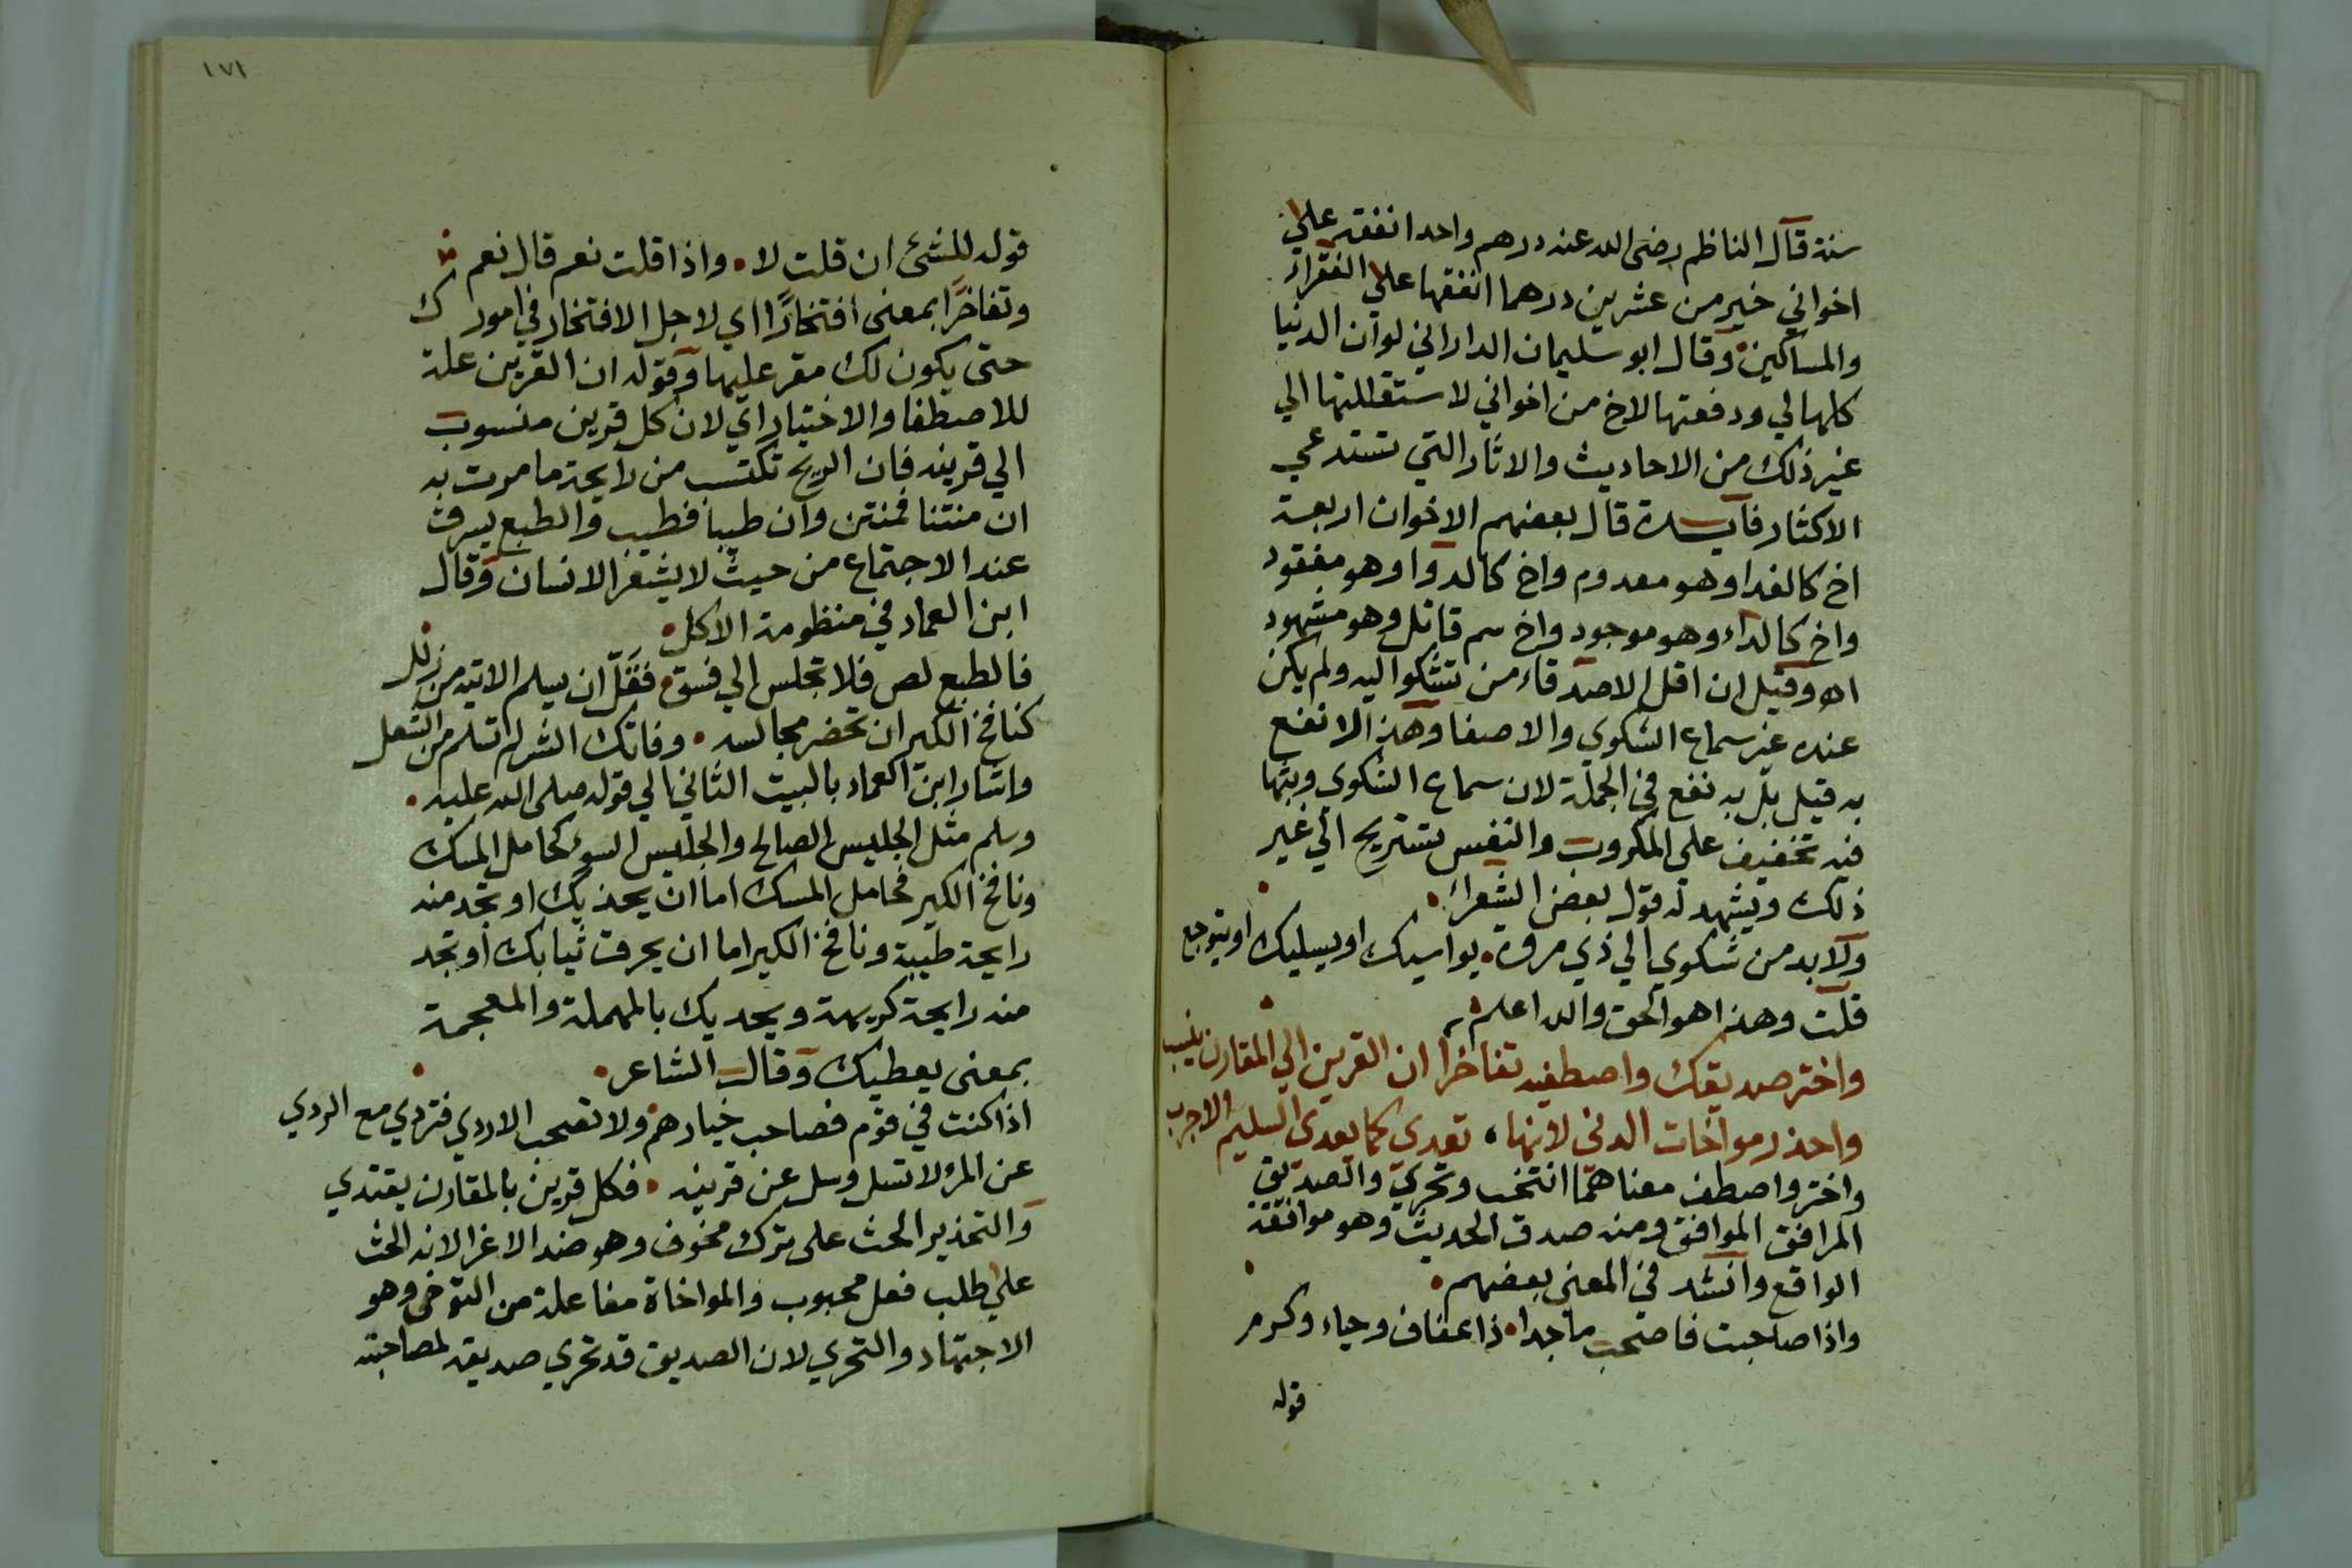 سنة قال الناظم رضى الله عنه درهم واحد انفقه علي
اخواني خير من عشرين درهما انفقها علي الفقراء
والمساكين وقال ابو سليمان الداراني لو ان الدنيا
كلها لي ودفعتها لاخ من اخواني لاستقللتها الي
غير ذلك من الاحاديث والاثار التي تستدعي
الاكثار فايدة قال بعضهم الاخوان اربعة
اخ كالغدا وهو معدوم واخ كالدوا وهو مفقود
واخ كالداء وهو موجود واخ سم قاتل وهو مشهود
اه وقيل ان اقل الاصدقاء من تشكوا اليه ولم يكن
عنده غير سماع الشكوي والاصغا وهذا لا نفع
به قيل بل به نفع في الجملة لان سماع الشكوي وبثها
فيه تخفيف علي المكروب والنفس تستريح الي غير
ذلك ويشهد له قول بعض الشعراء
ولا بد من شكوي الي ذي مروة يواسيك او يسليك او يتوجع
قلت وهذا هو الحق والله اعلم
واختر صديقك واصطفيه تفاخرا ان القرين الي المقارن ينسب
واحذر مواخات الدنى لانها تعدي كما يعدى السليم الاجرب
واختر واصطف معناهما انتخب وتحري والصديق
المرافق الموافق ومنه صدق الحديث وهو موافقة
الواقع وانشد في المعنى بعضهم
واذا صاحبت فاصحب ماجدا ذا عفاف وحياء وكرم
قوله
١٧١
قوله للشئ ان قلت لا واذا قلت نعم قال نعم
وتفاخرا بمعنى افتخارا اي لاجل الافتخار في امورك
حتى يكون لك مقر عليها وقوله ان القرين علة
للاصطفا والاختيار اي لان كل قرين منسوب
الي قرينه فان الريح تكتسب من رايحة ما مرت به
ان منتنا فمنتن وان طيبا فطيب والطبع يسرق
عند الاجتماع من حيث لا يشعر الانسان وقال
ابن العماد في منظومة الاكل
فالطبع لص فلا تجلس الي فسق فقل ان يسلم الاتيه من زلل
كنافخ الكير ان تحضر مجالسه وفاتك الشر لم تسلم من الشعل
واشار ابن العماد بالبيت الثاني الي قوله صلى الله عليه
وسلم مثل الجليس الصالح والجليس السوء كحامل المسك
ونافخ الكير فحامل المسك اما ان يحذيك او تجد منه
رايحة طيبة ونافخ الكير اما ان يحرق ثيابك او تجد
منه رايحة كريهة ويحديك بالمهملة والمعجمة
بمعنى يعطيك وقال الشاعر
اذا كنت في قوم فصاحب خيارهم ولا تصحب الاردي فتردي مع الردي
عن المرء لا تسل وسل عن قرينه فكل قرين بالمقارن يقتدي
والتحذير الحث على ترك مخوف وهو ضد الاغرا لانه الحث
علي طلب فعل محبوب والمواخاة مفاعلة من التوخى وهو
الاجتهاد والتحري لان الصديق قد تحري صديقه لمصاحبته